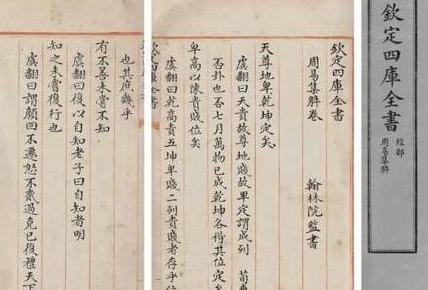 欽定四庫全書
經部
周易集解
欽定四庫全書
周易集解卷
翰林院監書
天尊地卑乾坤定矣
虞翻曰天貴故尊地賤故卑定謂成列 荀
否卦也否七月萬物已成乾坤各得其位定
卑高以陳貴賤位矣
虞翻曰乾高貴五坤卑賤二列貴賤者存乎位
也其庶幾乎
有不善未嘗不知
虞翻曰復以自知老子曰自知者明
知之未嘗復行也
虞翻曰謂顏回不遷怒不貳過克己復禮天下